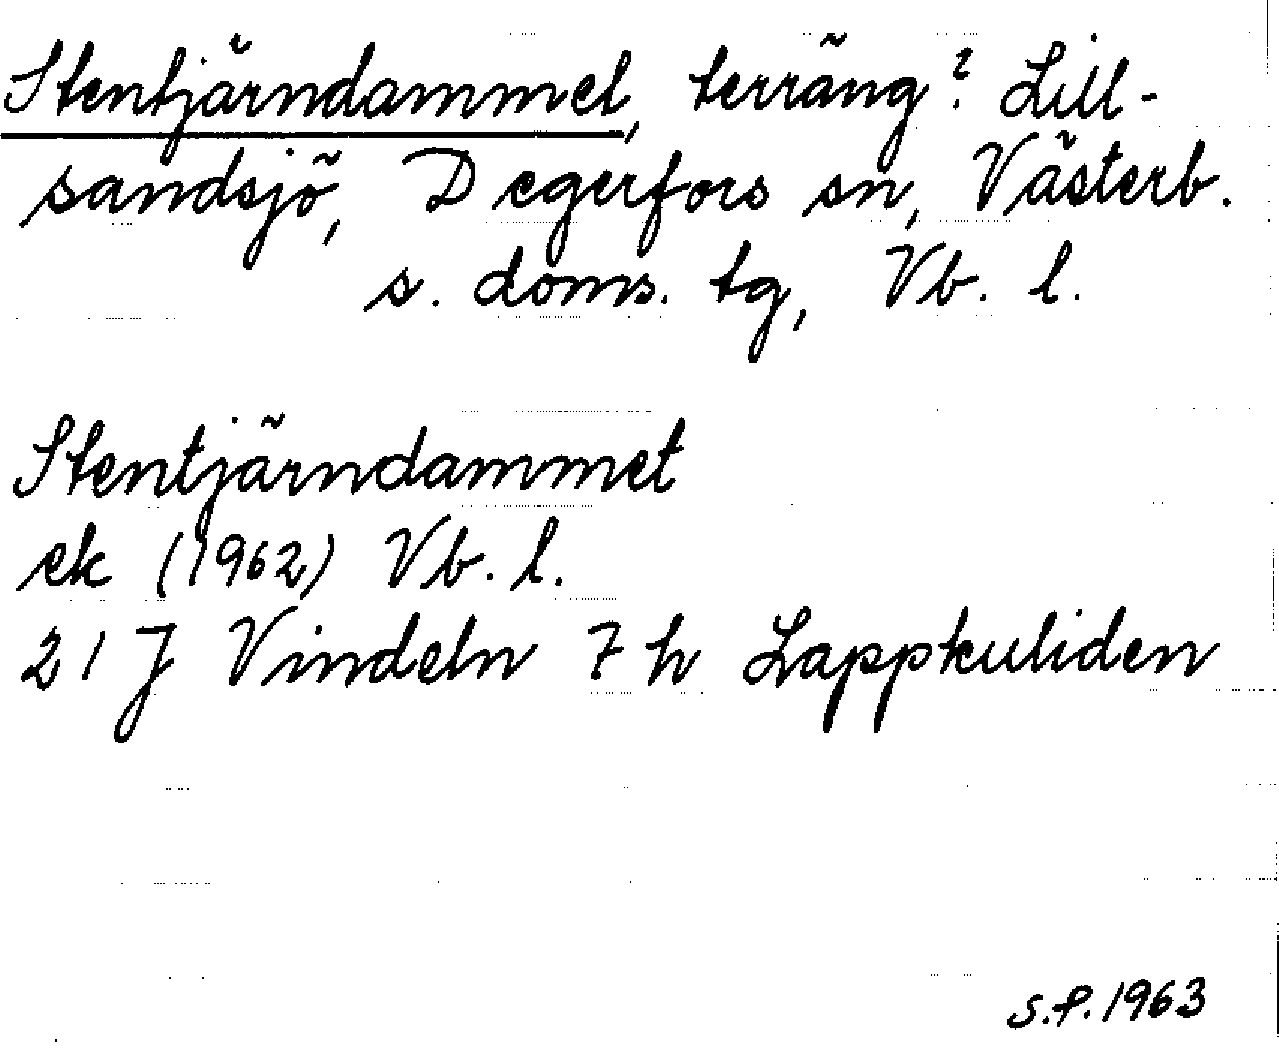 Stentjärndammet, terräng? Lill-
sandsjö, Degerfors sn, Västerb.
s. doms. tg, Vb. l.
Stentjärndammet
ek (1962) Vb. l.
21 J Vindeln 7 h Lappkuliden
S.P. 1963